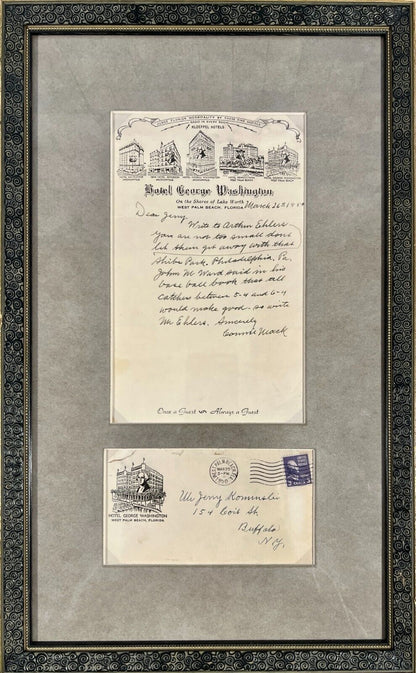 KLOEPPEL HOTELS
Hotel George Washington
On the Shores of Lake Worth
WEST PALM BEACH, FLORIDA March 26th
Dear Jerry.
Write to Arthur Ehlers
you are not too small dont
let them get away with that
Shibe Park. Philadelphia. Pa.
John M Ward said in his
base ball book that all
catchers between 5-4 and 6-4
would make good. so write
Mr Ehlers. Sincerely
Connie Mack
Once a Guest Always a Guest
HOTEL GEORGE WASHINGTON
WEST PALM BEACH, FLORIDA.
Jerry
154 Coit St.
Buffalo
N.Y.